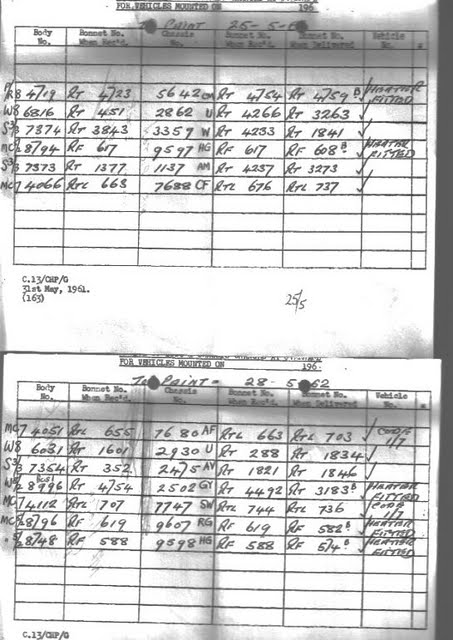 FOR VEHICLES MOUNTED ON 196
To PAINT 25-5-6
Body No. Bonnet No. When Rec'd. Chassis No. Bonnet No. When Delivered Vehicle No.
R8 4/19 RT 4/23 5642 RT 4/54 RT 4/59 B ✓ HEATER FITTED
W8 6316 RT 451 2862 U RT 4266 RT 3263 ✓
S3/3 7374 RT 3843 3359 W RT 4233 RT 1841 ✓
8/94 RF 617 9597 HG RF 617 RF 608 B ✓ HEATER FITTED
S3/3 7373 RT 1377 1137 AM RT 4237 RT 3273 ✓
MC7 4066 RTL 663 7688 CF RTL 676 RTL 737 ✓
C.13/CHP/G
31st May, 1961.
(163)
25/5
FOR VEHICLES MOUNTED ON 196
To PAINT = 28-5-62
Body No. Bonnet No. When Rec'd. Chassis No. Bonnet No. When Delivered Vehicle No.
MC7 4051 RTL 655 7680 AF RTL 663 RTL 703 ✓ CODE 1/7
W8 6031 RT 1601 2930 U RT 288 RT 1834 ✓
S3/ 7354 RT 352 24/5 AV RT 1821 RT 1846 ✓
8796 RT 4/54 2502 GY RT 4492 RT 3183 B ✓ HEATER FITTED
MC7 4112 RTL 707 7747 SW RTL 744 RTL 736 ✓ CODE 1/7
8/96 RF 619 9607 RG RF 619 RF 582 B ✓ HEATER FITTED
8/48 RF 588 9598 HG RF 588 RF 5/4 B ✓ HEATER FITTED
C.13/CHP/G